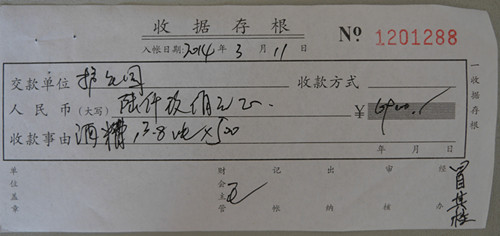 收据存根
入帐日期:2014年3月11日
№ 1201288
交款单位 收款方式
人民币(大写)陆仟玖佰元正. ¥6900.-
收款事由 酒糟, 13.8吨×500
年 月 日
一收据存根
单位盖章
财会主管 王
记帐
出纳
审核
经办